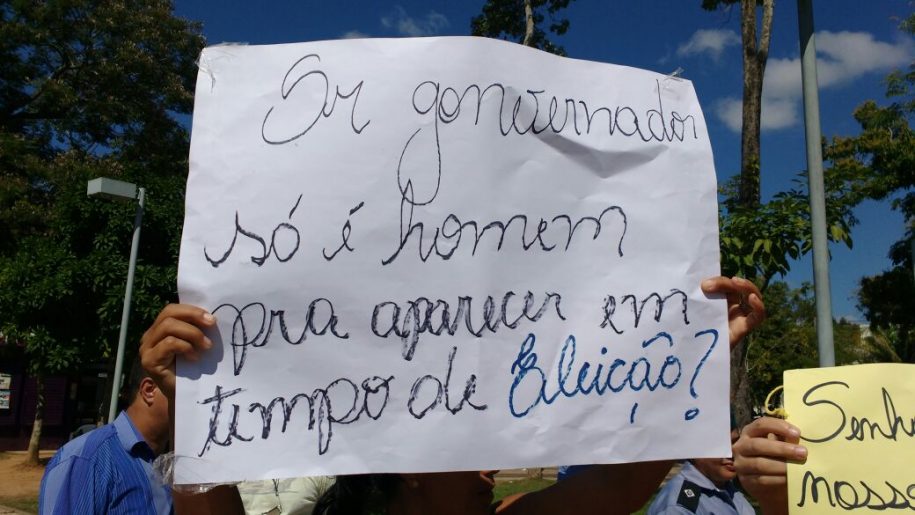 Sr governador
só é homem
pra aparecer em
tempo de Eleição?
Senh
nosso